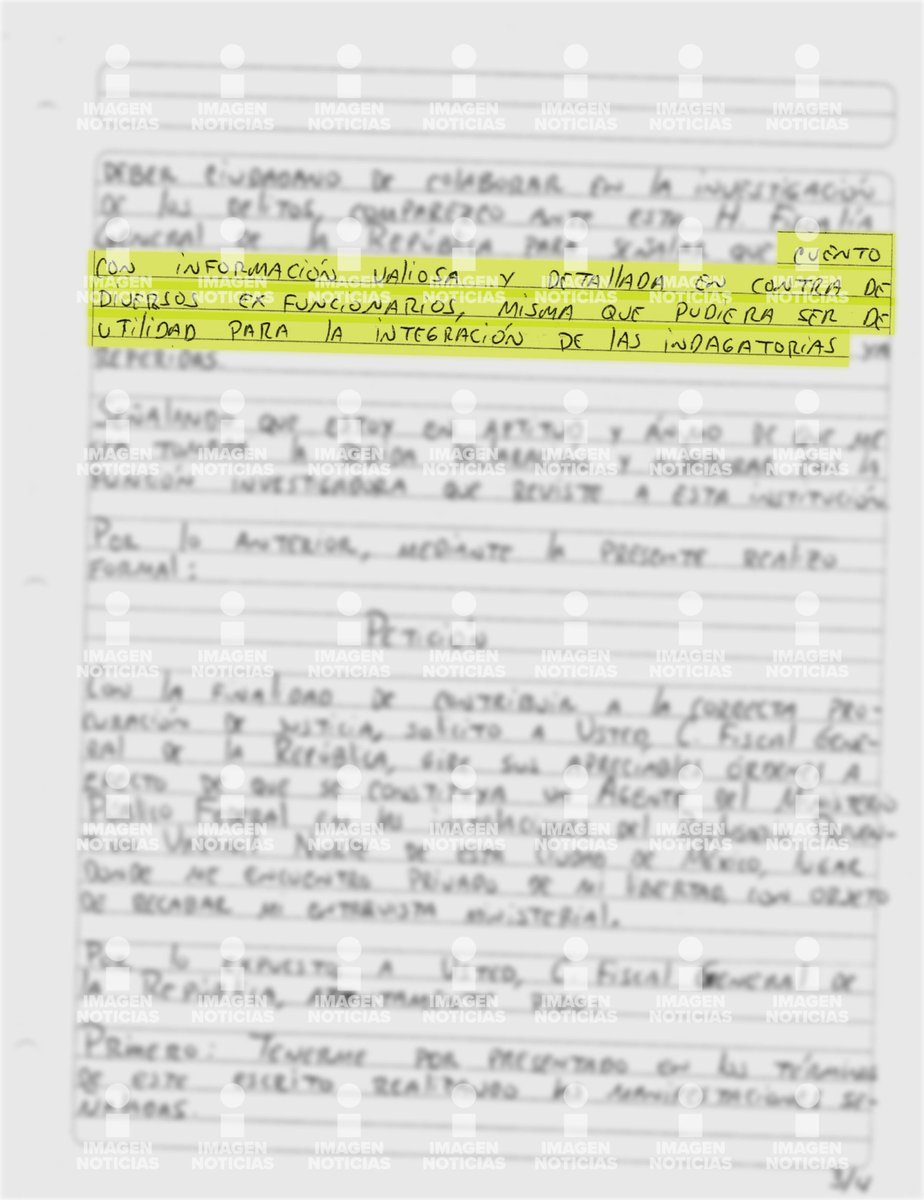 DEBER CIUDADANO DE COLABORAR EN LA INVESTIGACIÓN
DE LOS DELITOS, COMPAREZCO ANTE ESTA H. FISCALÍA
GENERAL DE LA REPÚBLICA PARA SEÑALAR QUE CUENTO
CON INFORMACIÓN VALIOSA Y DETALLADA EN CONTRA DE
DIVERSOS EX FUNCIONARIOS, MISMA QUE PUDIERA SER DE
UTILIDAD PARA LA INTEGRACIÓN DE LAS INDAGATORIAS YA
REFERIDAS.
SEÑALANDO QUE ESTOY EN APTITUD Y ÁNIMO DE QUE ME
TOMADA LA DEBIDA Y COLABORAR EN LA
FUNSIÓN INVESTIGADORA QUE REVISTE A ESTA INSTITUCIÓN
POR LO ANTERIOR, MEDIANTE LA PRESENTE REALIZO
FORMAL:
PETICIÓN
CON LA FINALIDAD DE CONTRIBUIR A LA CORRECTA PRO-
CURACIÓN DE JUSTICIA, SOLICITO A USTED, C. FISCAL GENE-
RAL DE LA REPÚBLICA, GIRE SUS APRECIABLES ÓRDENES A
EFECTO DE QUE SE CONSTITUYA UN AGENTE DEL MINISTERIO
PÚBLICO FEDERAL EN LAS INSTALACIONES DEL RECLUSORIO PREVEN-
TIVO VARONIL NORTE DE ESTA CIUDAD DE MÉXICO, LUGAR
DONDE ME ENCUENTRO PRIVADO DE MI LIBERTAD CON OBJETO
DE RECABAR MI ENTREVISTA MINISTERIAL.
POR LO EXPUESTO A USTED, C. FISCAL GENERAL DE
LA REPÚBLICA, ATENTAMENTE PIDO:
PRIMERO: TENERME POR PRESENTADO EN LOS TÉRMINOS
DE ESTE ESCRITO REALIZANDO LAS MANIFESTACIONES SE-
ÑALADAS.
3/4
IMAGEN NOTICIAS